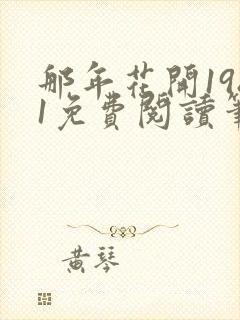 那年花開19
1免費閱讀
黃琴